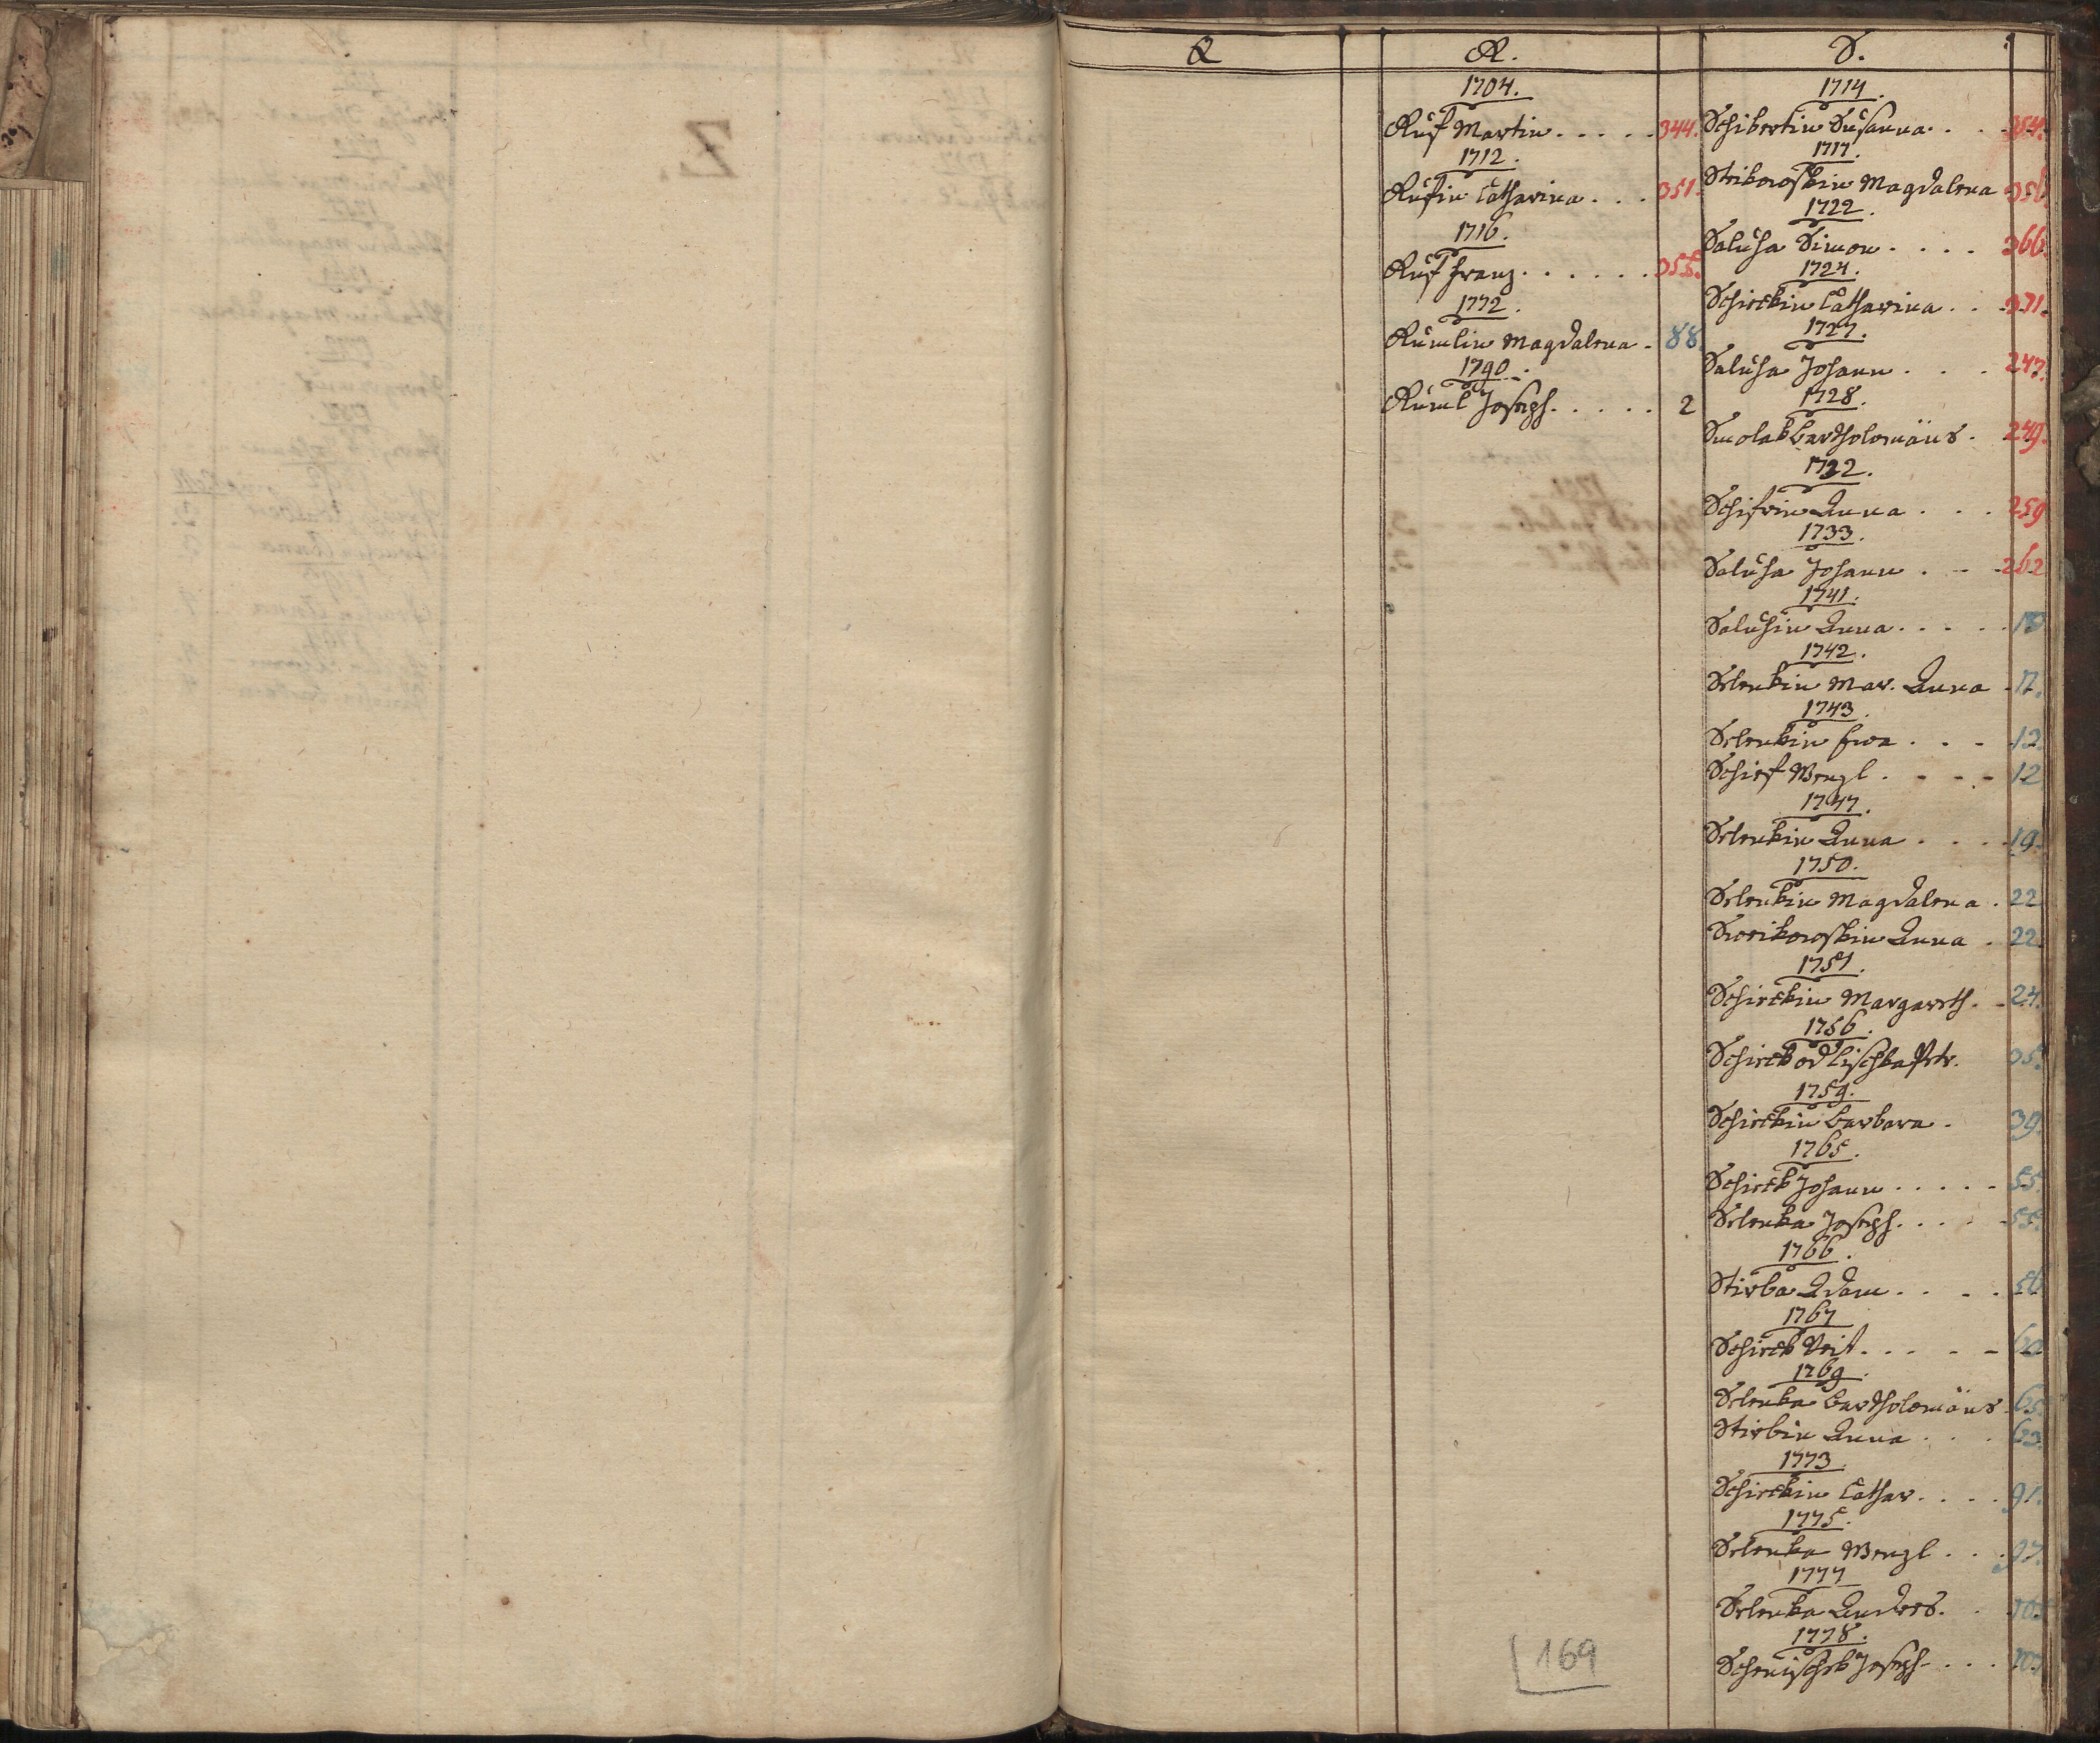 Q
R.
1704.
Ruß Martin . . . . . 344.
1712.
Rußin Catharina . . . 351.
1716.
Ruß Franz . . . . . . 355.
1772.
Rumlin Magdalena - 88.
1790.
Ruml Joseph . . . . . 2
S.
1714.
Schibertin Susanna . . . 354.
1717.
Strikowskin Magdalena 356.
1722.
Saluha Simon . . . . 366.
1724.
Schirckin Catharina . . 371.
1727.
Saluha Johann . . . 247.
1728.
Smolak Bartholomäus . 249.
1732.
Schifrin Anna . . . 259
1733.
Saluha Johann . - - 262
1741.
Saluhin Anna . . . . .
1742.
Selenkin Mar. Anna -
1743.
Selenkin Eva . . - 12.
Schief Wenzl . - - - 12
1747.
Selenkin Anna . . . 19.
1750.
Selenkin Magdalena . 22
Sworikowskin Anna . 22.
1751.
Schirckin Margareth . - 24.
1756.
Schirck od Lischka Ptr. 35.
1759.
Schirckin Barbara - 39.
1765.
Schirck Johann . . . . . 55.
Selenka Joseph . . . . 55.
1766.
Stirba Adam . . - . 56
1767
Schirck Veit . . . - - 60
1769.
Selenka Bartholomäus . 65.
Stirbin Anna . . . 63.
1773
Schirckin Cathar . . . . 91.
1775.
Selenka Wenzl . . . 97.
1777
Selenka Anders . .
1778.
Joseph . . . .
169
Z.